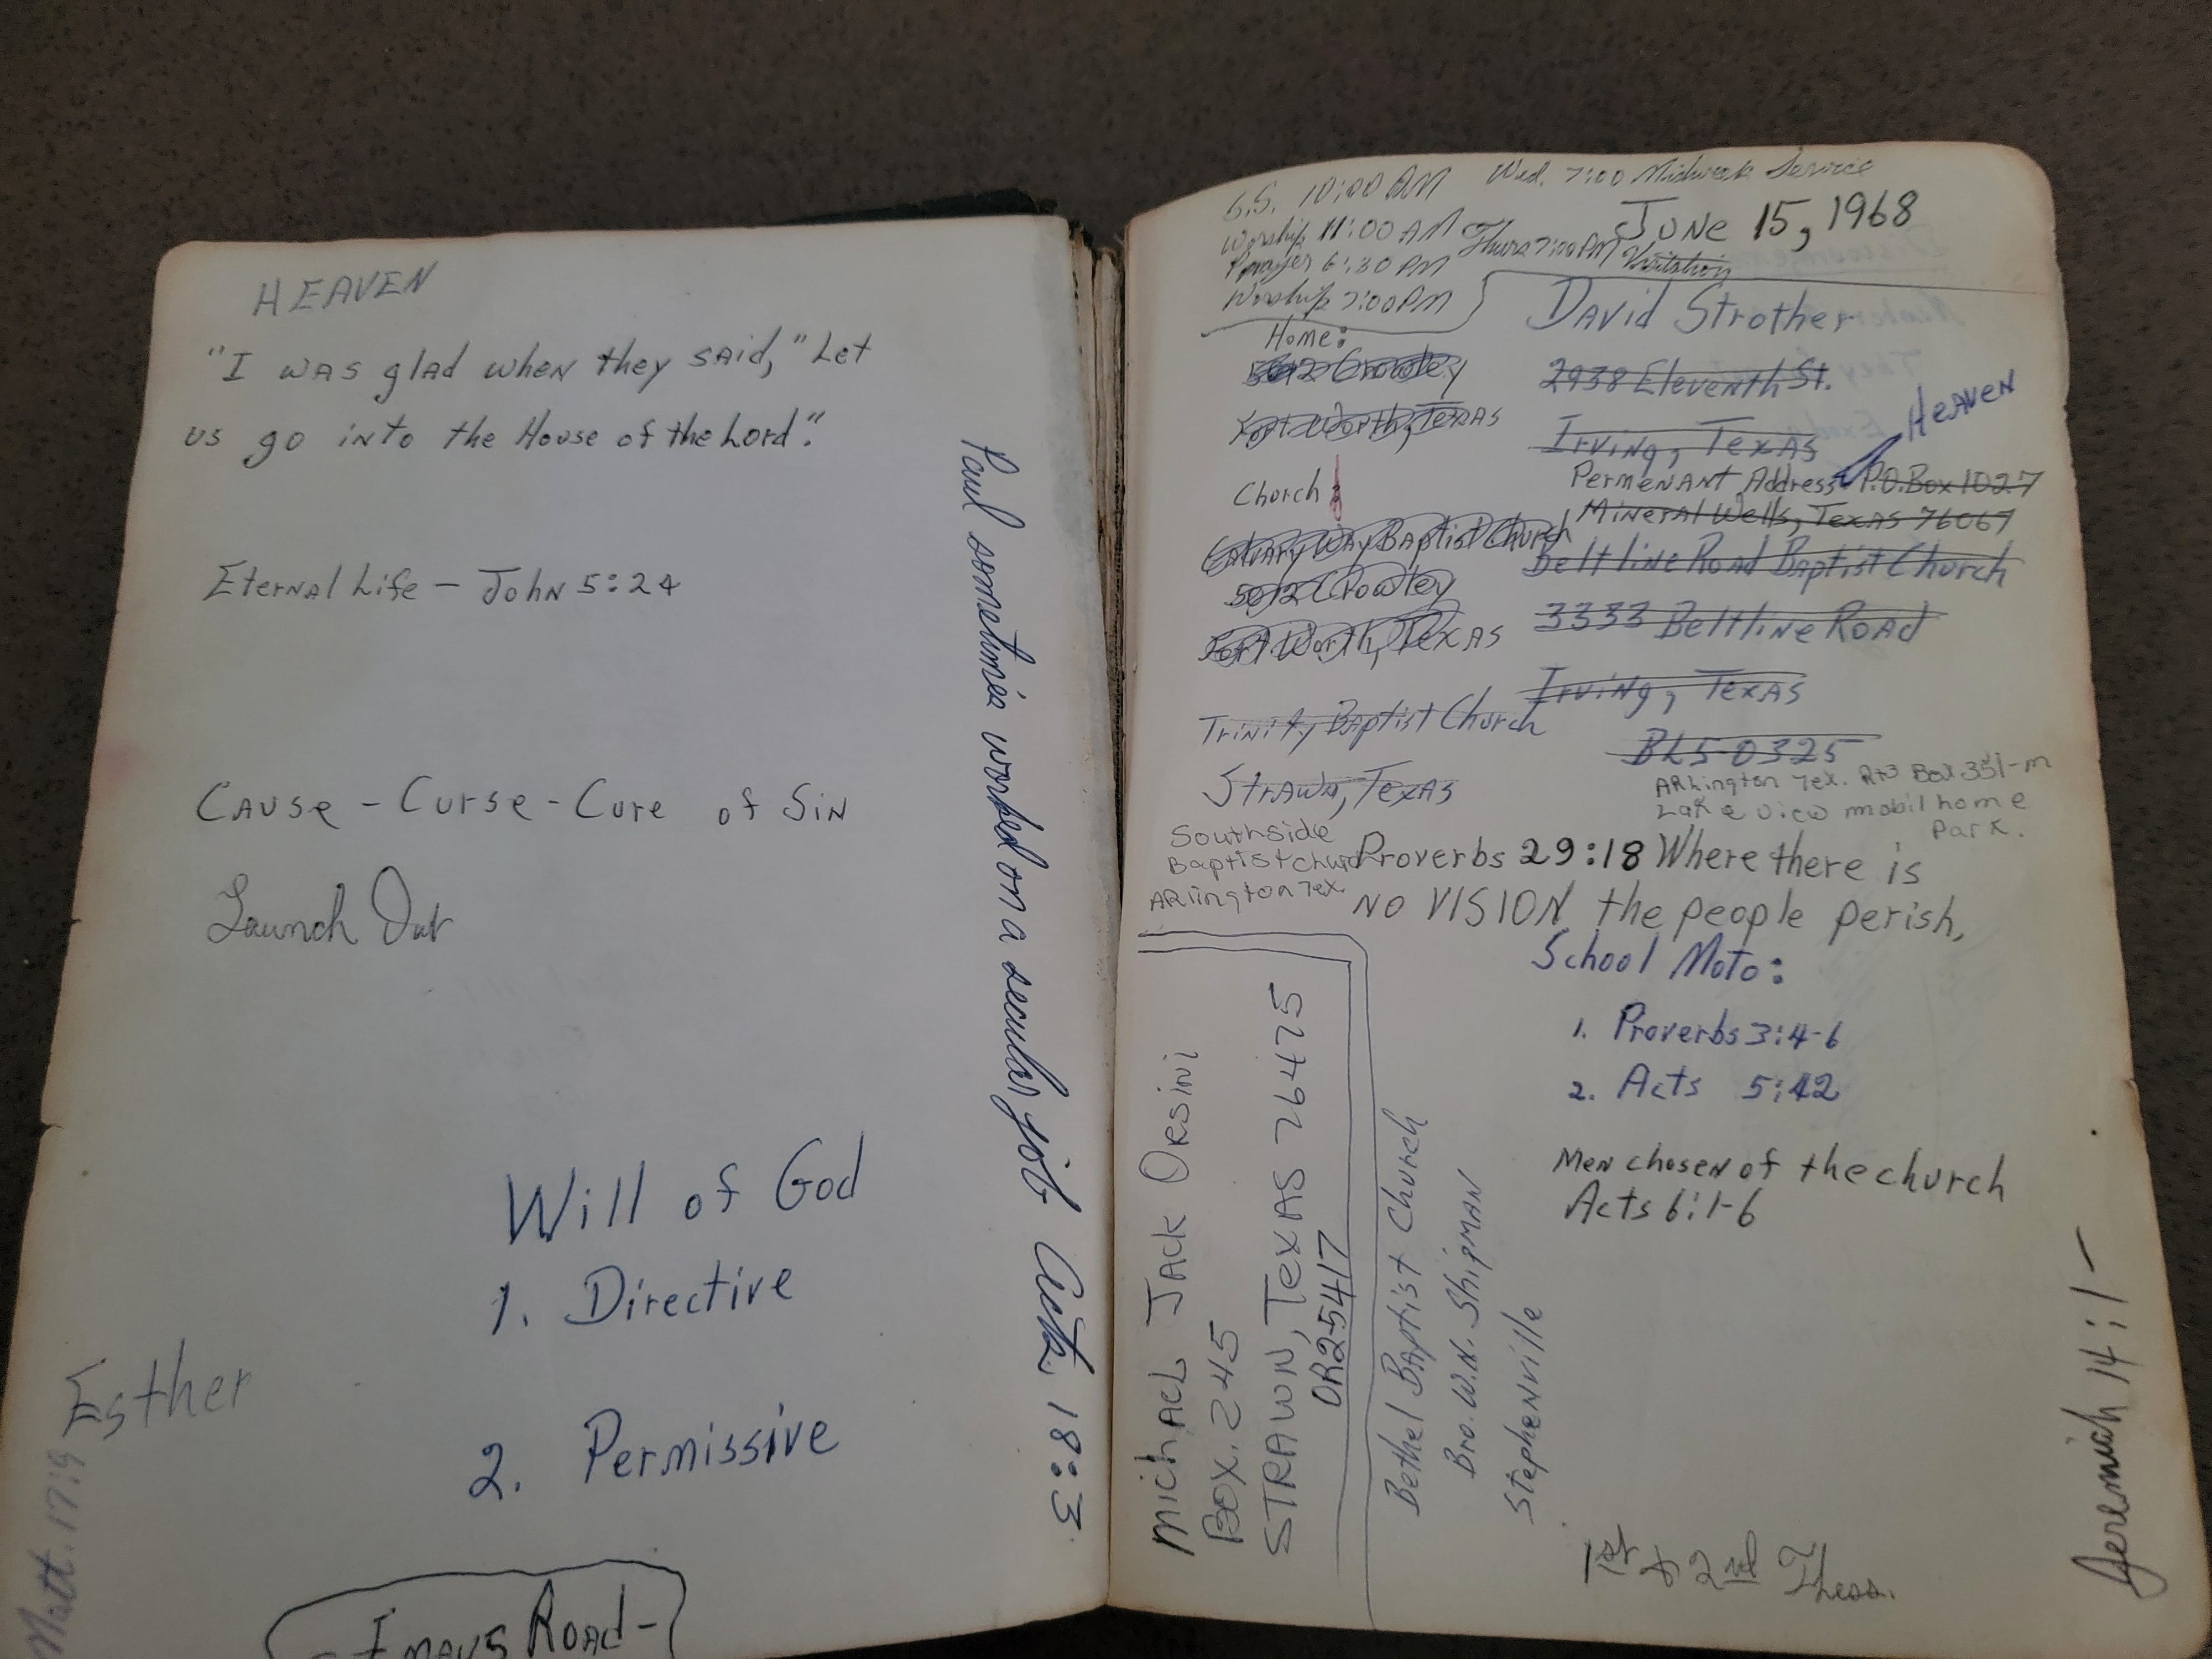 HEAVEN
"I was glad when they said," Let
us go into the House of the Lord".
Eternal Life - John 5:24
Cause - Curse - Cure of Sin
Launch Out
Will of God
1. Directive
2. Permissive
Esther
Matt. 17:9
Emaus Road-
Paul sometimes worked on a secular job Acts 18:3
S.S. 10:00 AM
Worship 11:00 AM
Prayer 6:30 PM
Worship 7:00 PM
Wed. 7:00 Midweek Service
Thurs 7:00 PM Visitation
June 15, 1968
David Strother
2938 Eleventh St.
Irving, Texas
Heaven
Permenant Address P.O. Box 1027
Mineral Wells, Texas 76067
Beltline Road Baptist Church
3333 Beltline Road
Irving, Texas
BL5-0325
Arlington Tex. Rt3 Box 351-m
Lake view mobil home
Park.
Home:
5012 Crowley
Fort Worth, Texas
Church
Calvary Way Baptist Church
5012 Crowley
Fort Worth, Texas
Trinity Baptist Church
Strawn, Texas
Southside
Baptist Church
Arlington Tex.
Proverbs 29:18 Where there is
NO VISION the people perish,
School Moto:
1. Proverbs 3:4-6
2. Acts 5:42
Men chosen of the church
Acts 6:1-6
Michael Jack Orsini
Box. 245
STRAWN, Texas 76475
OR2-5417
Bethel Baptist Church
Bro. W.N. Shipman
Stephenville
1st & 2nd Thess.
Jeremiah 14:1-